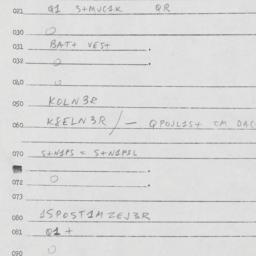 021 Q1 S+MJC1K QR
030
031 BAT+ VES+ .
032 .
040
050 KOLN3R
060 KSELN3R / — QPOJL1S+ CM DAC
070 S+N1PS = S+N1PSL
.
072 .
073
080 1SPOST1MZEJ3R
081 Q1 +
090